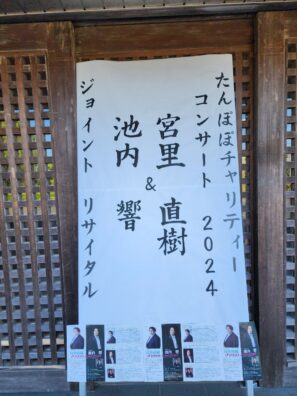 たんぽぽチャリティー
コンサート 2024
宮里 直樹
&
池内 響
ジョイント リサイタル